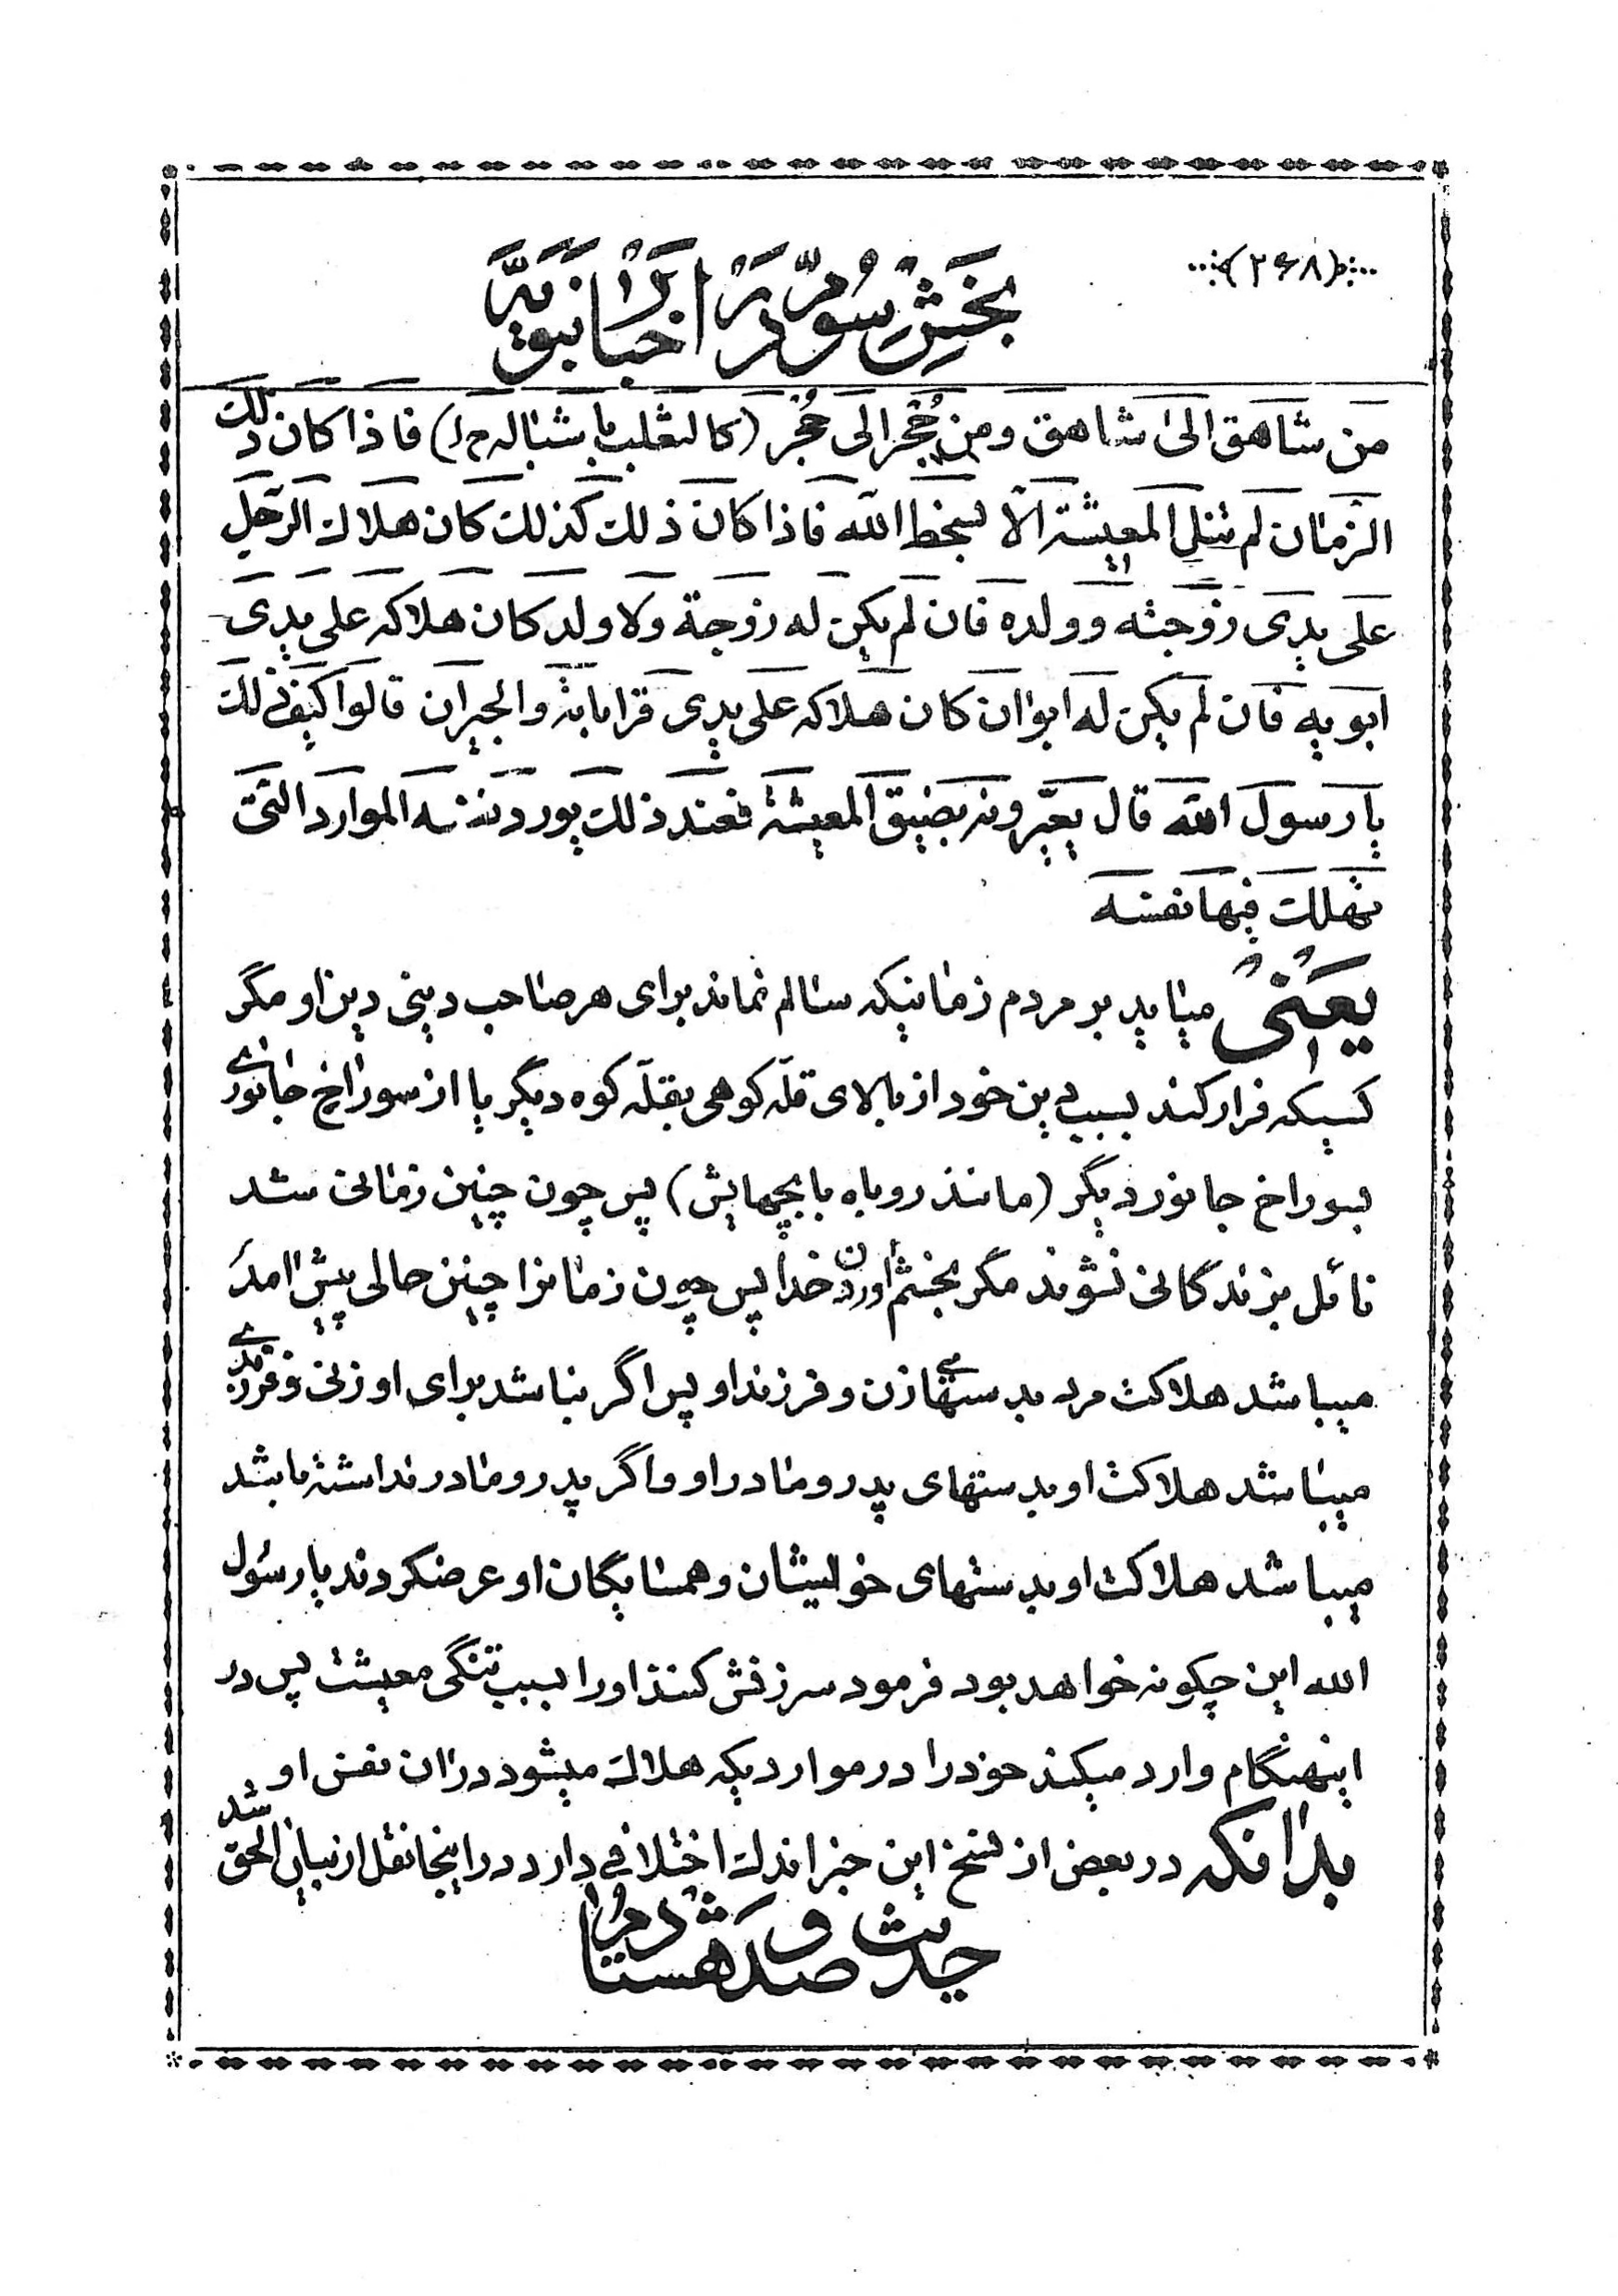 (۲۶۸)
بخش سوم در اخبار نبویه
من شاهق الی شاهق و من حُجر الی حُجر (کالثعلب باشباله) فاذا کان ذلک
الزمان لم تنل المعیشة الّا بسخط الله فاذا کان ذلک کذلک کان هلاک الرّجل
علی یدی زوجته و ولده فان لم یکن له زوجة ولا ولد کان هلاکه علی یدی
ابویه فان لم یکن له ابوان کان هلاکه علی یدی قراباته والجیران قالوا کیف ذلک
یا رسول الله قال یعیّرونه بضیق المعیشة فعند ذلک یورد نفسه الموارد التی
تهلک فیها نفسه
یعنی میاید بر مردم زمانیکه سالم نماند برای هر صاحب دینی دین او مگر
کسیکه فرار کند بسبب دین خود از بالای قلّه کوهی بقلّه کوه دیگر یا از سوراخ جانوری
بسوراخ جانور دیگر (مانند روباه با بچهایش) پس چون چنین زمانی شد
نائل بزندگانی نشوند مگر بخشم اوردن خدا پس چون زمانرا چنین حالی پیش امد
میباشد هلاکت مرد بدستهای زن و فرزند او پس اگر نباشد برای او زنی و فرزندی
میباشد هلاکت او بدستهای پدر و مادر او و اگر پدر و مادر نداشته باشد
میباشد هلاکت او بدستهای خویشان و همسایگان او عرضکردند یا رسول
الله این چگونه خواهد بود فرمود سرزنش کنند او را بسبب تنگی معیشت پس در
اینهنگام وارد میکند خود را در مواردیکه هلاک میشود در ان نفس او
بدانکه در بعض از نسخ این خبر اندک اختلافی دارد در اینجا نقل از بیان الحق شد
حدیث صد و هشتادم